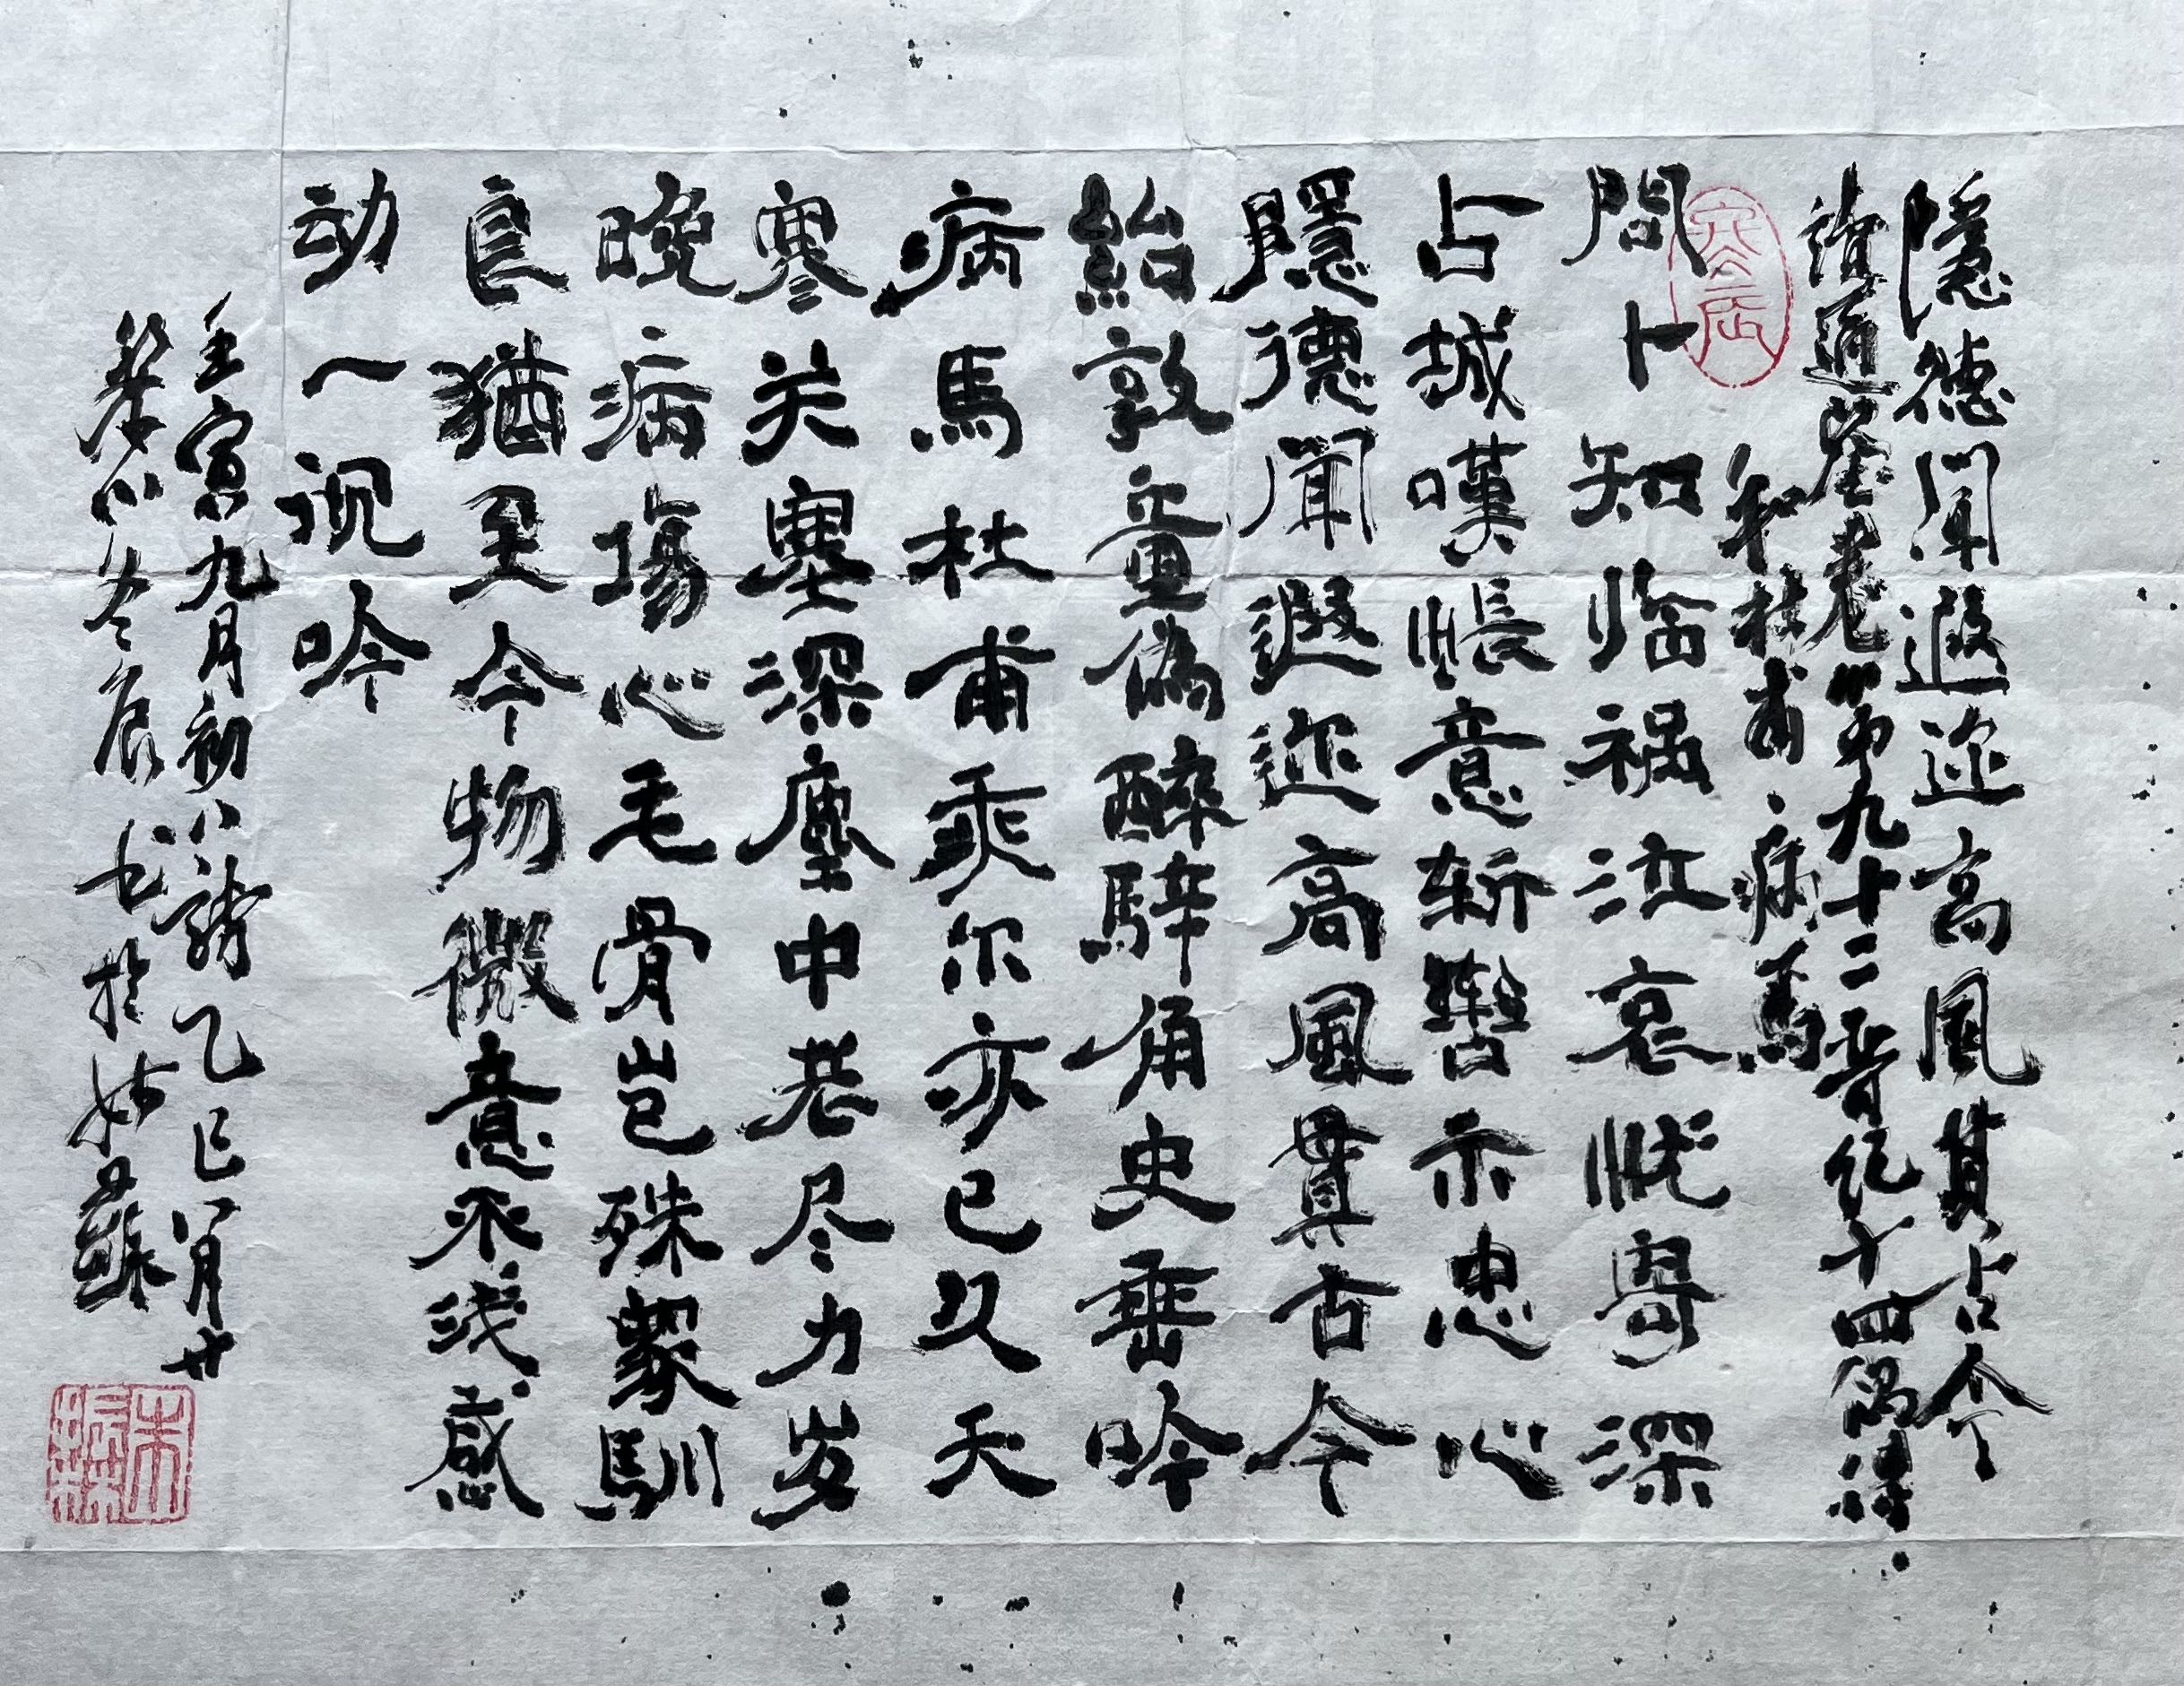 隱德聞遐迩高風貫古今
讀通鑒卷第九十二晋纪十四偶得
和杜甫病馬
問卜知临祸泣哀状寄深
占城嘆悵意斩轡示忠心
隱德聞遐迩高風貫古今
敦童偽醉辭角史垂吟
病馬杜甫乘尔亦已久天
寒关塞深塵中老尽力岁
晚病傷心毛骨岂殊衆馴
良猶至今物微意不浅感
动一沉吟
壬寅九月初八詩乙巳八月廿
冬辰书於姑蘇